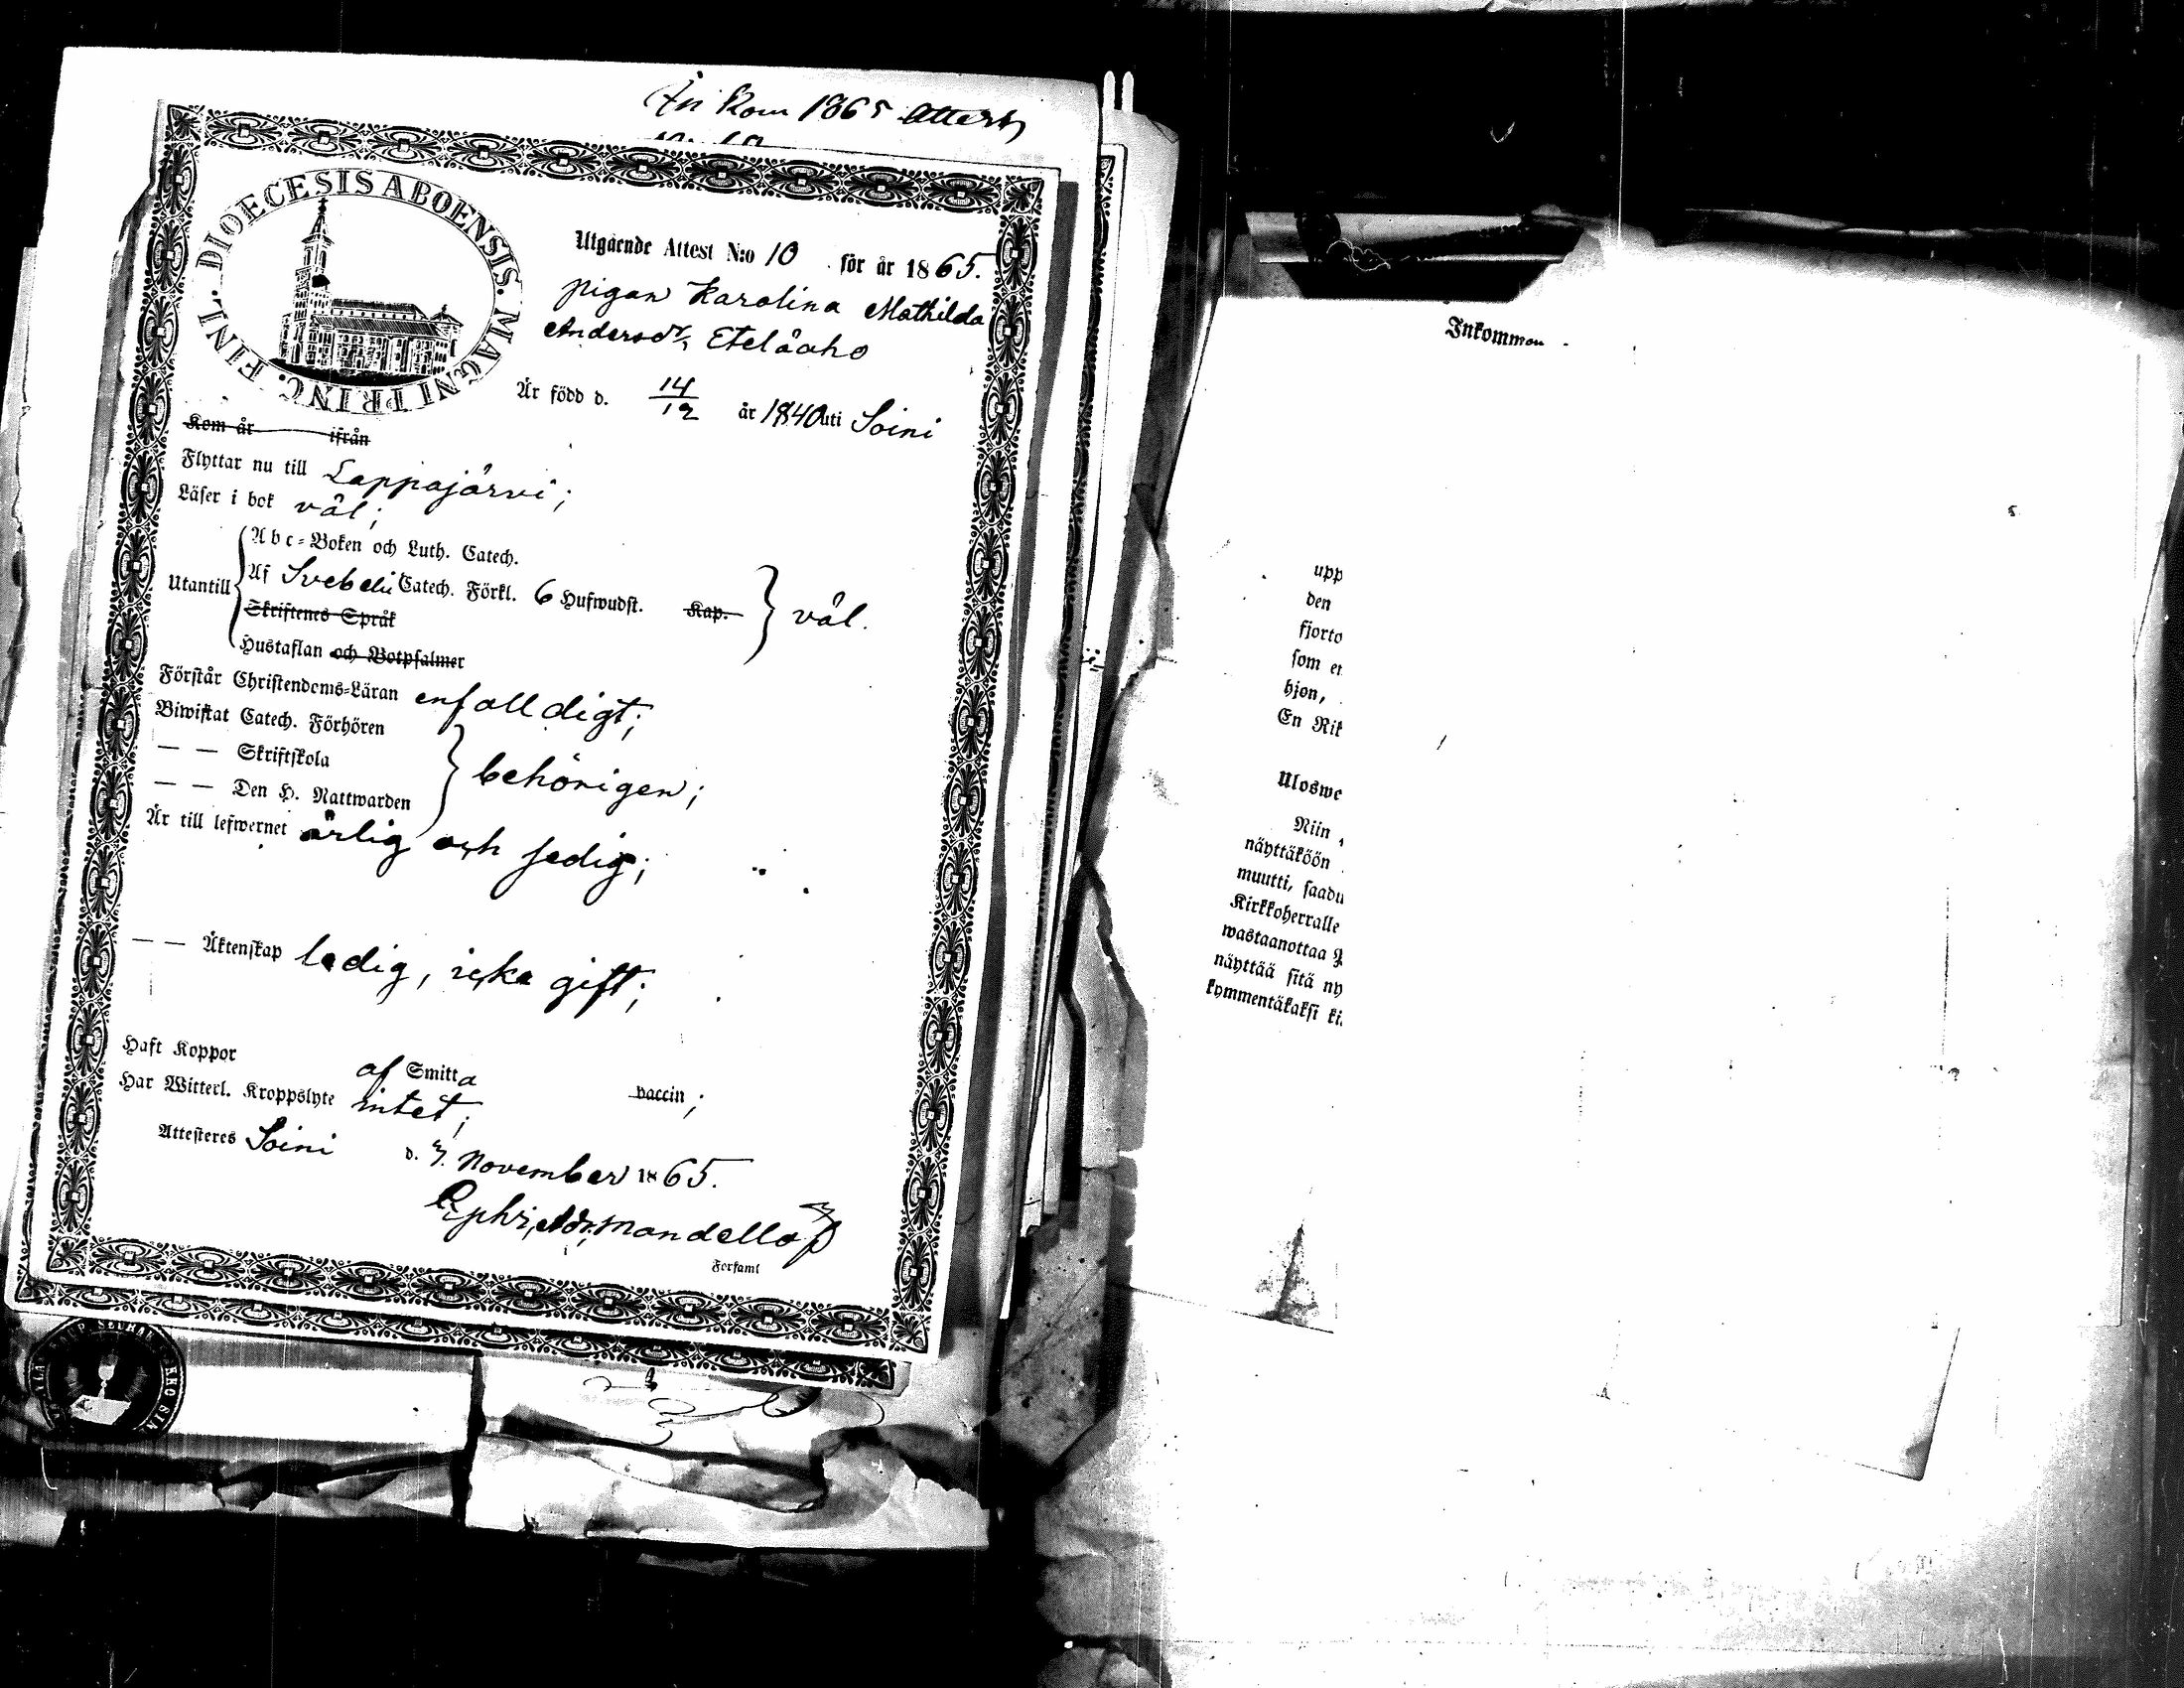 kom 1865
DIOECESIS ABOENSIS. MAGNI PRINC. FINL.
Utgående Attest N:o 10 för år 1865.
pigan Karolina Mathilda
Andersdr, Eteläaho
Är född d. 14/12 år 1840 uti Soini
Kom år ifrån
Flyttar nu till Lappajärvi;
Läser i bok väl;
Abc-Boken och Luth. Catech.
Utantill Af Svebelii Catech. Förkl. 6 Hufwudst. Kap. väl.
Skriftenes Språk
Hustaflan och Botpsalmer
Förstår Christendoms-Läran enfalldigt;
Biwistat Catech. Förhören
— — Skriftskola behörigen;
— — Den H. Nattwarden
Är till lefwernet ärlig och sedig;
— — Äktenskap ledig, icke gift;
Haft Koppor af Smitta vaccin;
Har Witterl. Kroppslyte intet;
Attesteres Soini d. 7. November 1865.
Mandellöf
Inkomman
upp
den
fjorto
som en
hjon,
En Rik
Uloswe
Niin
näyttäköön
muutti, saadu
Kirkkoherralle
wastaanottaa
näyttää sitä ny
kymmentäkaksi ki